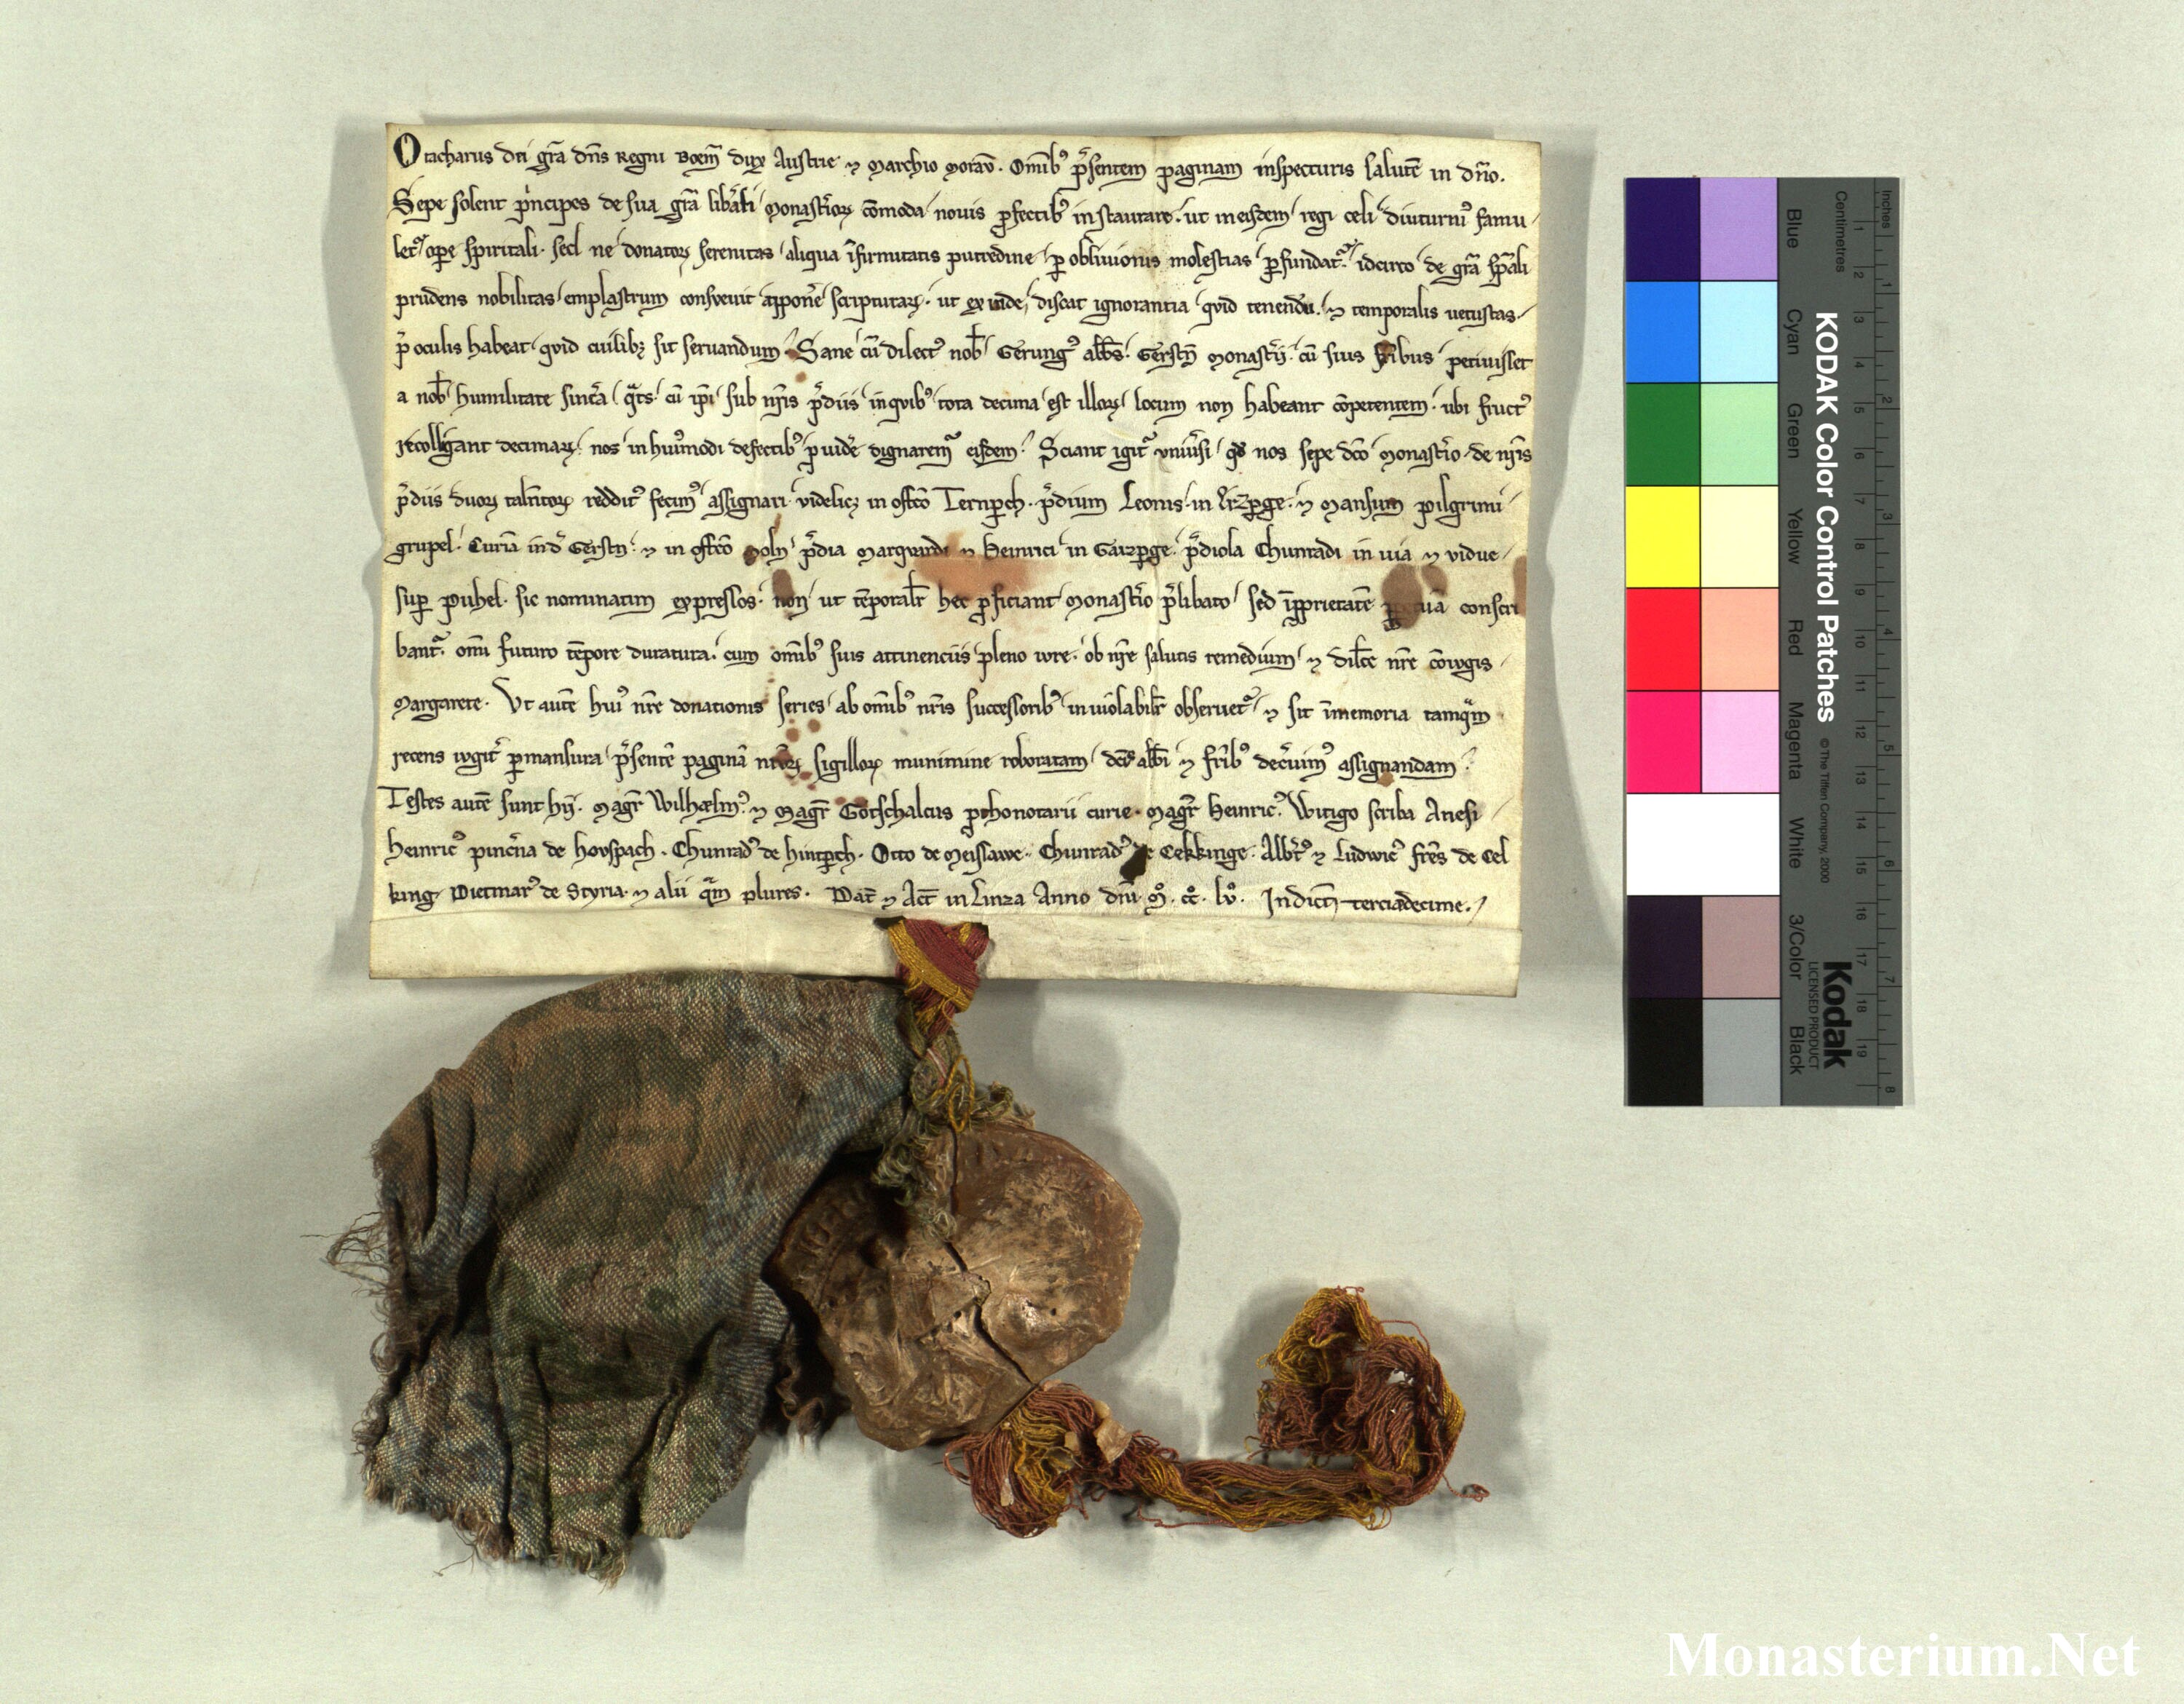 Otacharus dei gr̄a dn̄s Regni Boem̄ dux Austrie ⁊ Marchio Morav̄. Om̄ibꝰ p̄sentem paginam inspecturis salutē in dn̄o.
Sepe solent p̓ncipes de sua gr̄a lib̓ali monast̓ioꝝ cōmoda nouis ꝓfectibꝰ instaurare. ut in eisdem regi celi diuturniꝰ famu
let᷑ ope spiritali. sed ne donatoꝝ serenitas aliqua īfirmitatis putredine ꝑ obliuionis molestias ꝑfundat᷑. idcirco de gr̄a sp̄ali
prudens nobilitas emplastrum consveuit appon̓e scripturaꝝ. ut exinde discat ignorantia qvid tenendū. ⁊ temporalis uetustas
p̄ oculis habeat qvid cuilibꝫ sit seruandum. Sane cū dilectꝰ nob̄ Gerungꝰ abb̄s Gerstn̄ monast̓ii. cū suis fr̄ibus petiuisset
a nob̄ humilitate sinc̓a q̄t̄s. cū ip̄i sub nr̄is p̄diis in qvibꝰ tota decima est illoꝝ locum non habeant cōpetentem. ubi fructꝰ
recolligant decimaꝝ. nos in huiꝰmodi defectibꝰ ꝓuid̓e dignarem᷑ eisdem. Sciant igit᷑ vniu̓si qd̄ nos sepe dc̄o monast̓io de nr̄is
p̄diis duoꝝ talentoꝝ redditꝰ fecimꝰ assignari. videlicꝫ in offc̄o Ternp̄ch. p̄dium Leonis in Arzꝑge. ⁊ Mansum pilgrimi
grupel. Curiā in d̓ Gerstn̄. ⁊ in offc̄o Moln̄ p̄dia Marqvardi ⁊ Heinrici in Gaizꝑge. p̄diola Chunradi in uia ⁊ vidue
suꝑ puhel. sic nominatim expressos. non ut tēporalit̓ hec ꝓficiant monast̓io p̄libato sed īꝓprietatē ꝑpetuā conscri
bant᷑. om̄i futuro tēpore duratura. cum om̄ibꝰ suis attinenciis pleno iure. ob nr̄e salutis remedium ⁊ dilc̄e nr̄e cōiugis
Margarete. Vt autē huiꝰ nr̄e donationis series ab om̄ibꝰ nr̄is successoribꝰ inuiolabilit̓ obseruet᷑. ⁊ sit ī memoria tamq̄m
recens iugit̓ ꝑmansura p̄sentē paginā nr̄oꝝ sigilloꝝ munimine roboratam dc̄o abb̄i ⁊ fr̄ibꝰ dec̓uimꝰ assignandam.
Testes autē sunt hij. Magr̄ Wilhælmꝰ. ⁊ Magr̄ Gotschalcus ꝓthonotarii curie. Magr̄ Heinricꝰ. Witigo scriba Anesi
Heinricꝰ pinc̓na de Hovspach. Chunradꝰ de hintp̄ch. Otto de Meissawe. Chunradꝰ de Cekkinge. Alb̓tꝰ ⁊ Ludwicꝰ fr̄es de Cel
king. Dietmarꝰ de Styria. ⁊ alii q̄m plures. Dat̄ ⁊ Act̄ in Linza Anno dn̄i. M̊. cc̊. lv̊. Indict̄n terciadecime.
KODAK Color Control Patches
© The Tiffen Company, 2000
Kodak
LICENSED PRODUCT
Blue
Cyan
Green
Yellow
Red
Magenta
White
3/Color
Black
Inches
Centimetres
1 2 3 4 5 6 7 8
1 2 3 4 5 6 7 8 9 10 11 12 13 14 15 16 17 18 19
Monasterium.Net